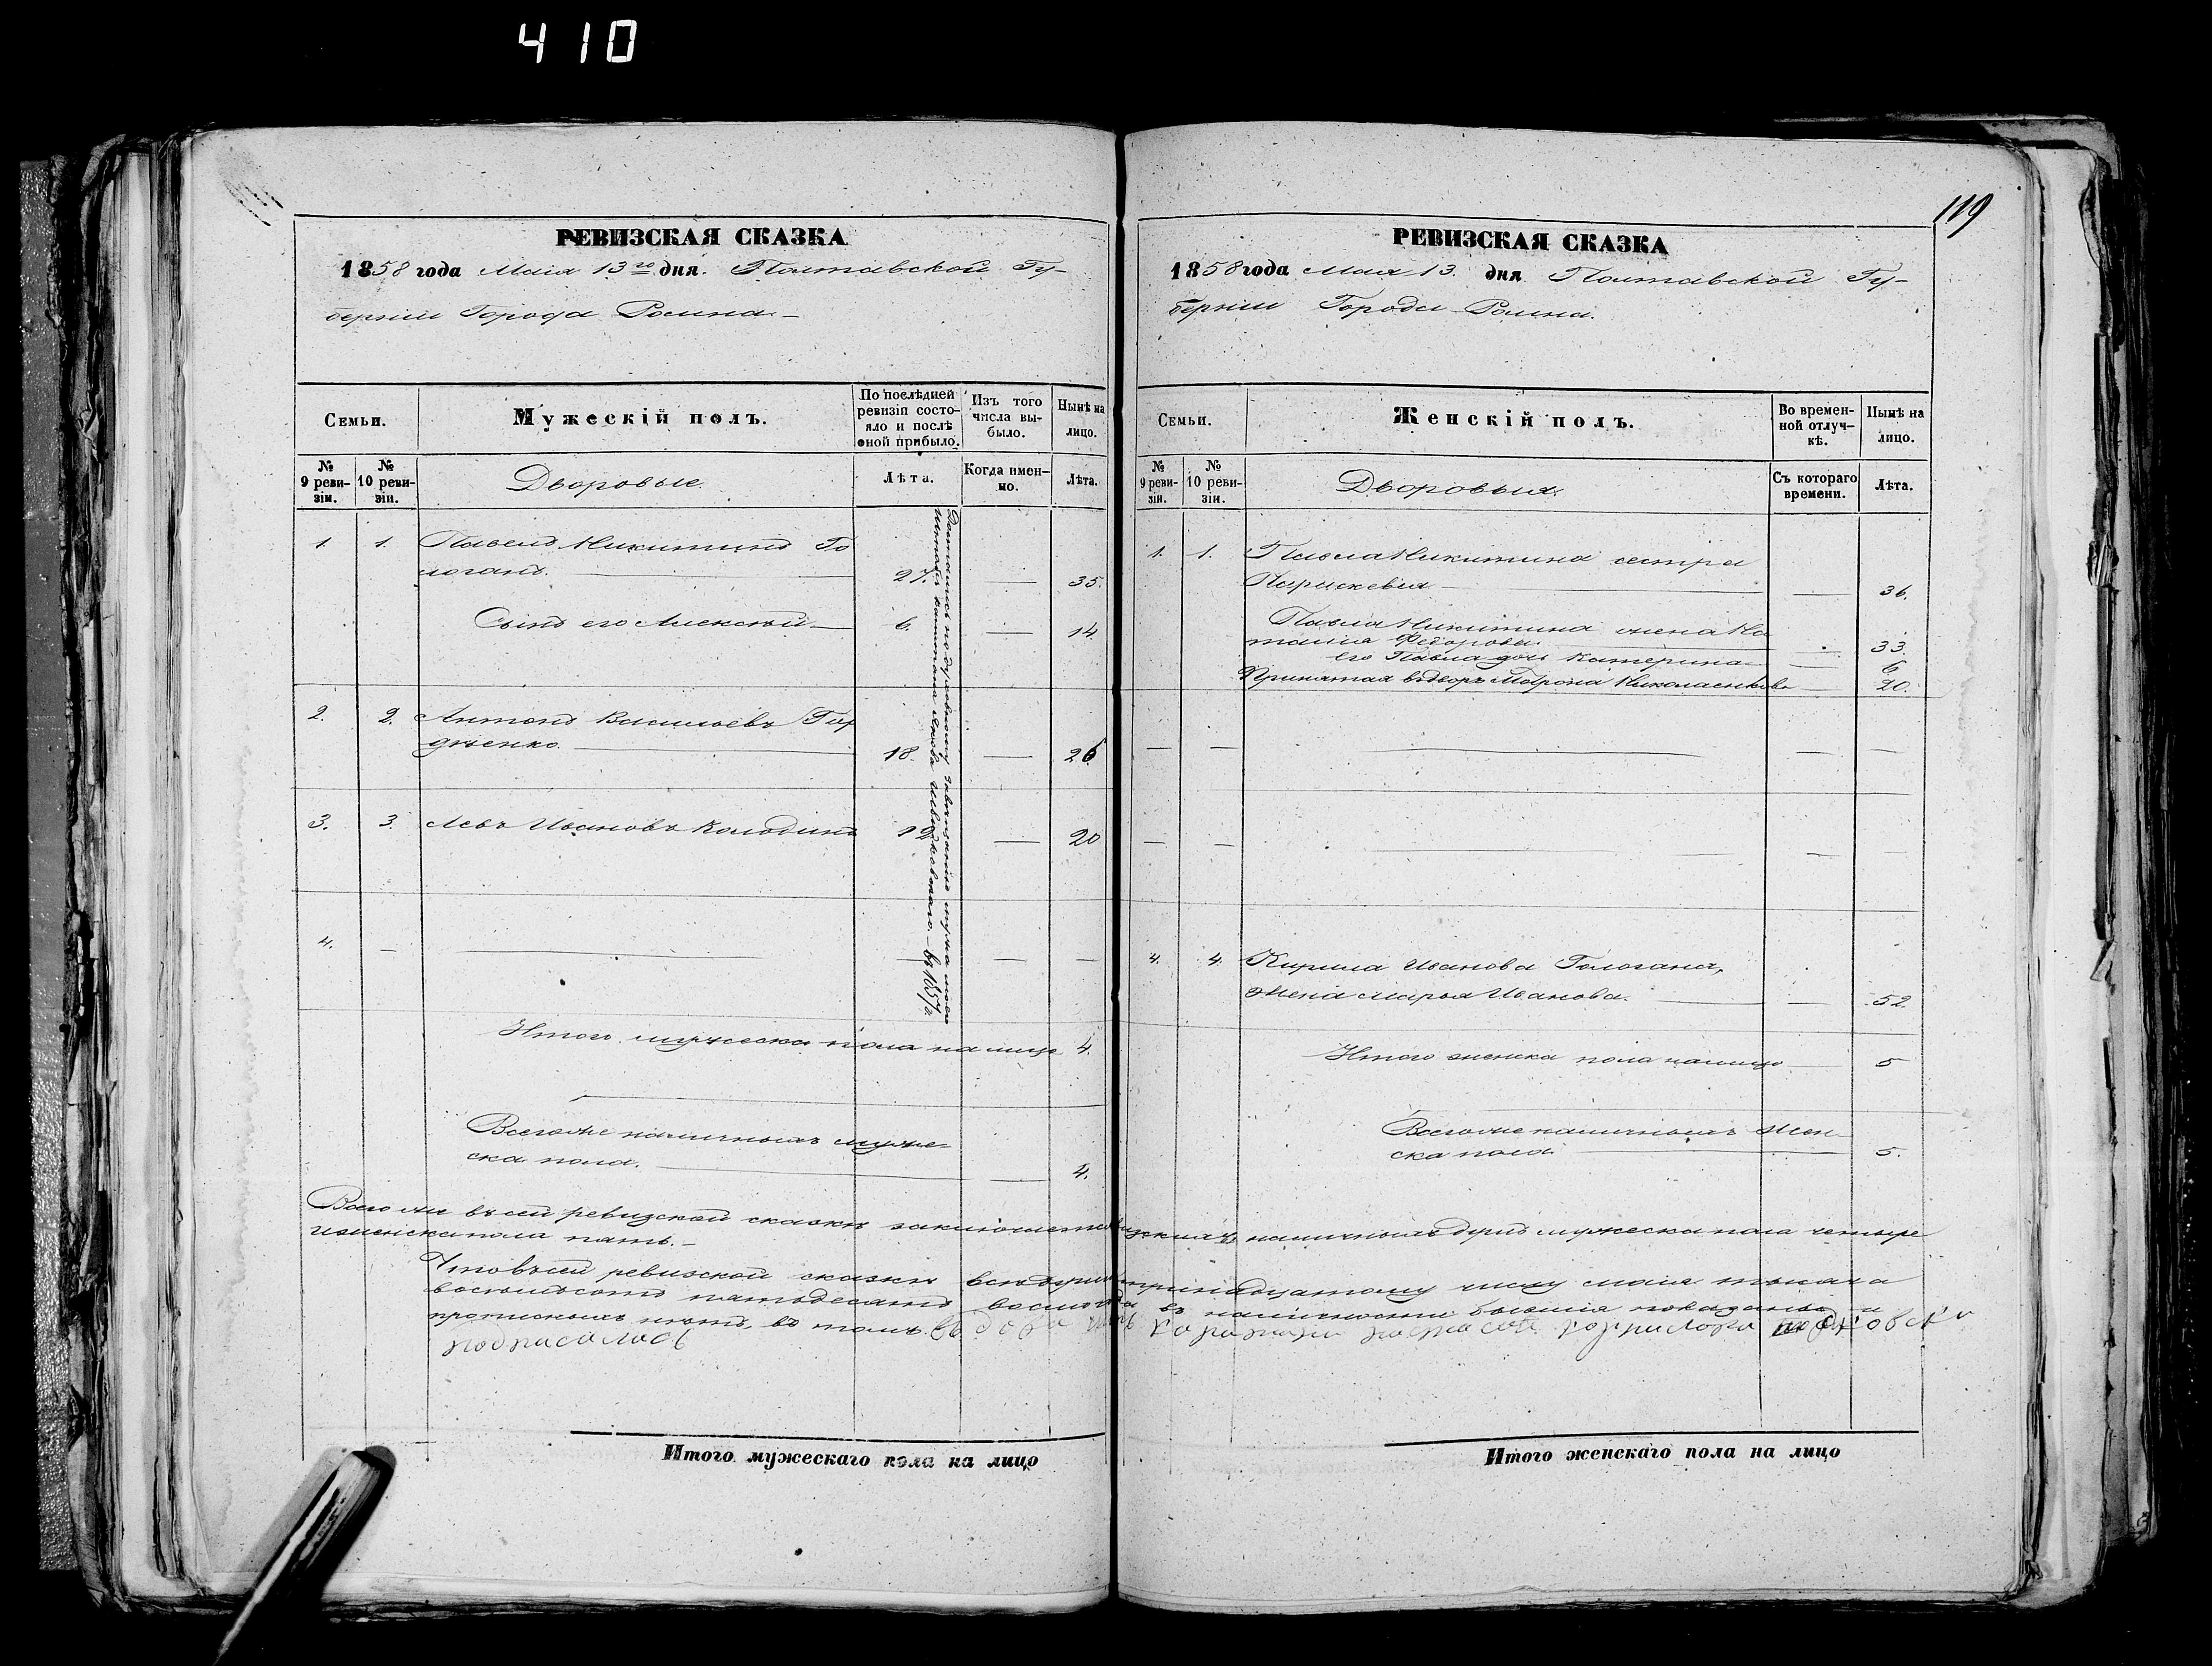 410
119
РЕВИЗСКАЯ СКАЗКА
1858 года Маія 13го дня. Полтавской Гу-
берніи Города Ромна.
Семьи.
Мужескій полъ.
По послѣдней ревизіи состо-яло и послѣ оной прибыло.
Изъ того числа вы-было.
Нынѣ на лицо.
№ 9 реви-зіи.
№ 10 реви-зіи.
Дворовые.
Лѣта.
Когда имен-но.
Лѣта.
1. 1. Павелъ Никитинъ Го
логанъ. 27. 35.
Сынъ его Алексѣй 6. 14.
2. 2. Антонъ Васильевъ Гор
дѣенко. 18. 26
3. 3. Левъ Ивановъ 12 20
4.
Достались по духовному завѣщанію мужа моего
Итого мужеска пола на лицо 4.
Всего же наличныхъ муже-
ска пола. 4.
РЕВИЗСКАЯ СКАЗКА
1858 года Маія 13. дня Полтавской Гу-
берніи Города Ромна.
Семьи.
Женскій полъ.
Во времен-ной отлуч-кѣ.
Нынѣ на лицо.
№ 9 реви-зіи.
№ 10 реви-зіи.
Дворовыя.
Съ котораго времени.
Лѣта.
1. 1. Павла Никитина сестра
Параскевія 36.
Павла Никитина жена На
талія Федорова 33.
его Павла дочь Катерина 6
Принятая въ дворъ Мотрона 20.
4. 4. Кирила Иванова Гологана,
жена Марья Иванова. 52
Итого женска пола налицо 5
Всего же наличныхъ жен-
ска пола 5.
Всего же въ сей ревизской сказкѣ заключается наличныхъ душъ мужеска пола четыре
и женска пола пять.
Что въ сей ревизской сказкѣ всѣ тринадцатому числу маія тысяча
восьмьсотъ пятьдесятъ восьмого года въ наличности бывшія показаны и
прописныхъ нѣтъ, въ томъ
подписалась
Итого мужескаго пола на лицо
Итого женскаго пола на лицо